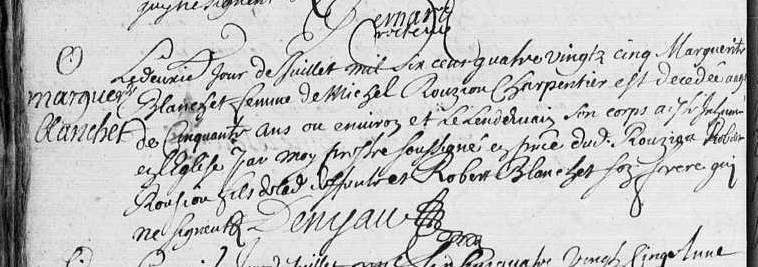 quy ne signent
Bernard
rictrie
O
marguerite Blanchet
Le deuxie Jour de Juillet mil Six cens quatre vingtz cinq Marguerite
Blanchet femme de Michel Rouziou Charpentier est decedée aage
de Cinquante ans ou environ et Le Lendemain Son corps a esté Inhumé
en L'Eglise par moy prestre soussigné en pnce dud. Rouziou
Rousiou fils de lad. deffunte et Robert Blanchet son frere qui
ne signent Denyau
Juillet mil Six cens quatre vingtz Cinq Anne